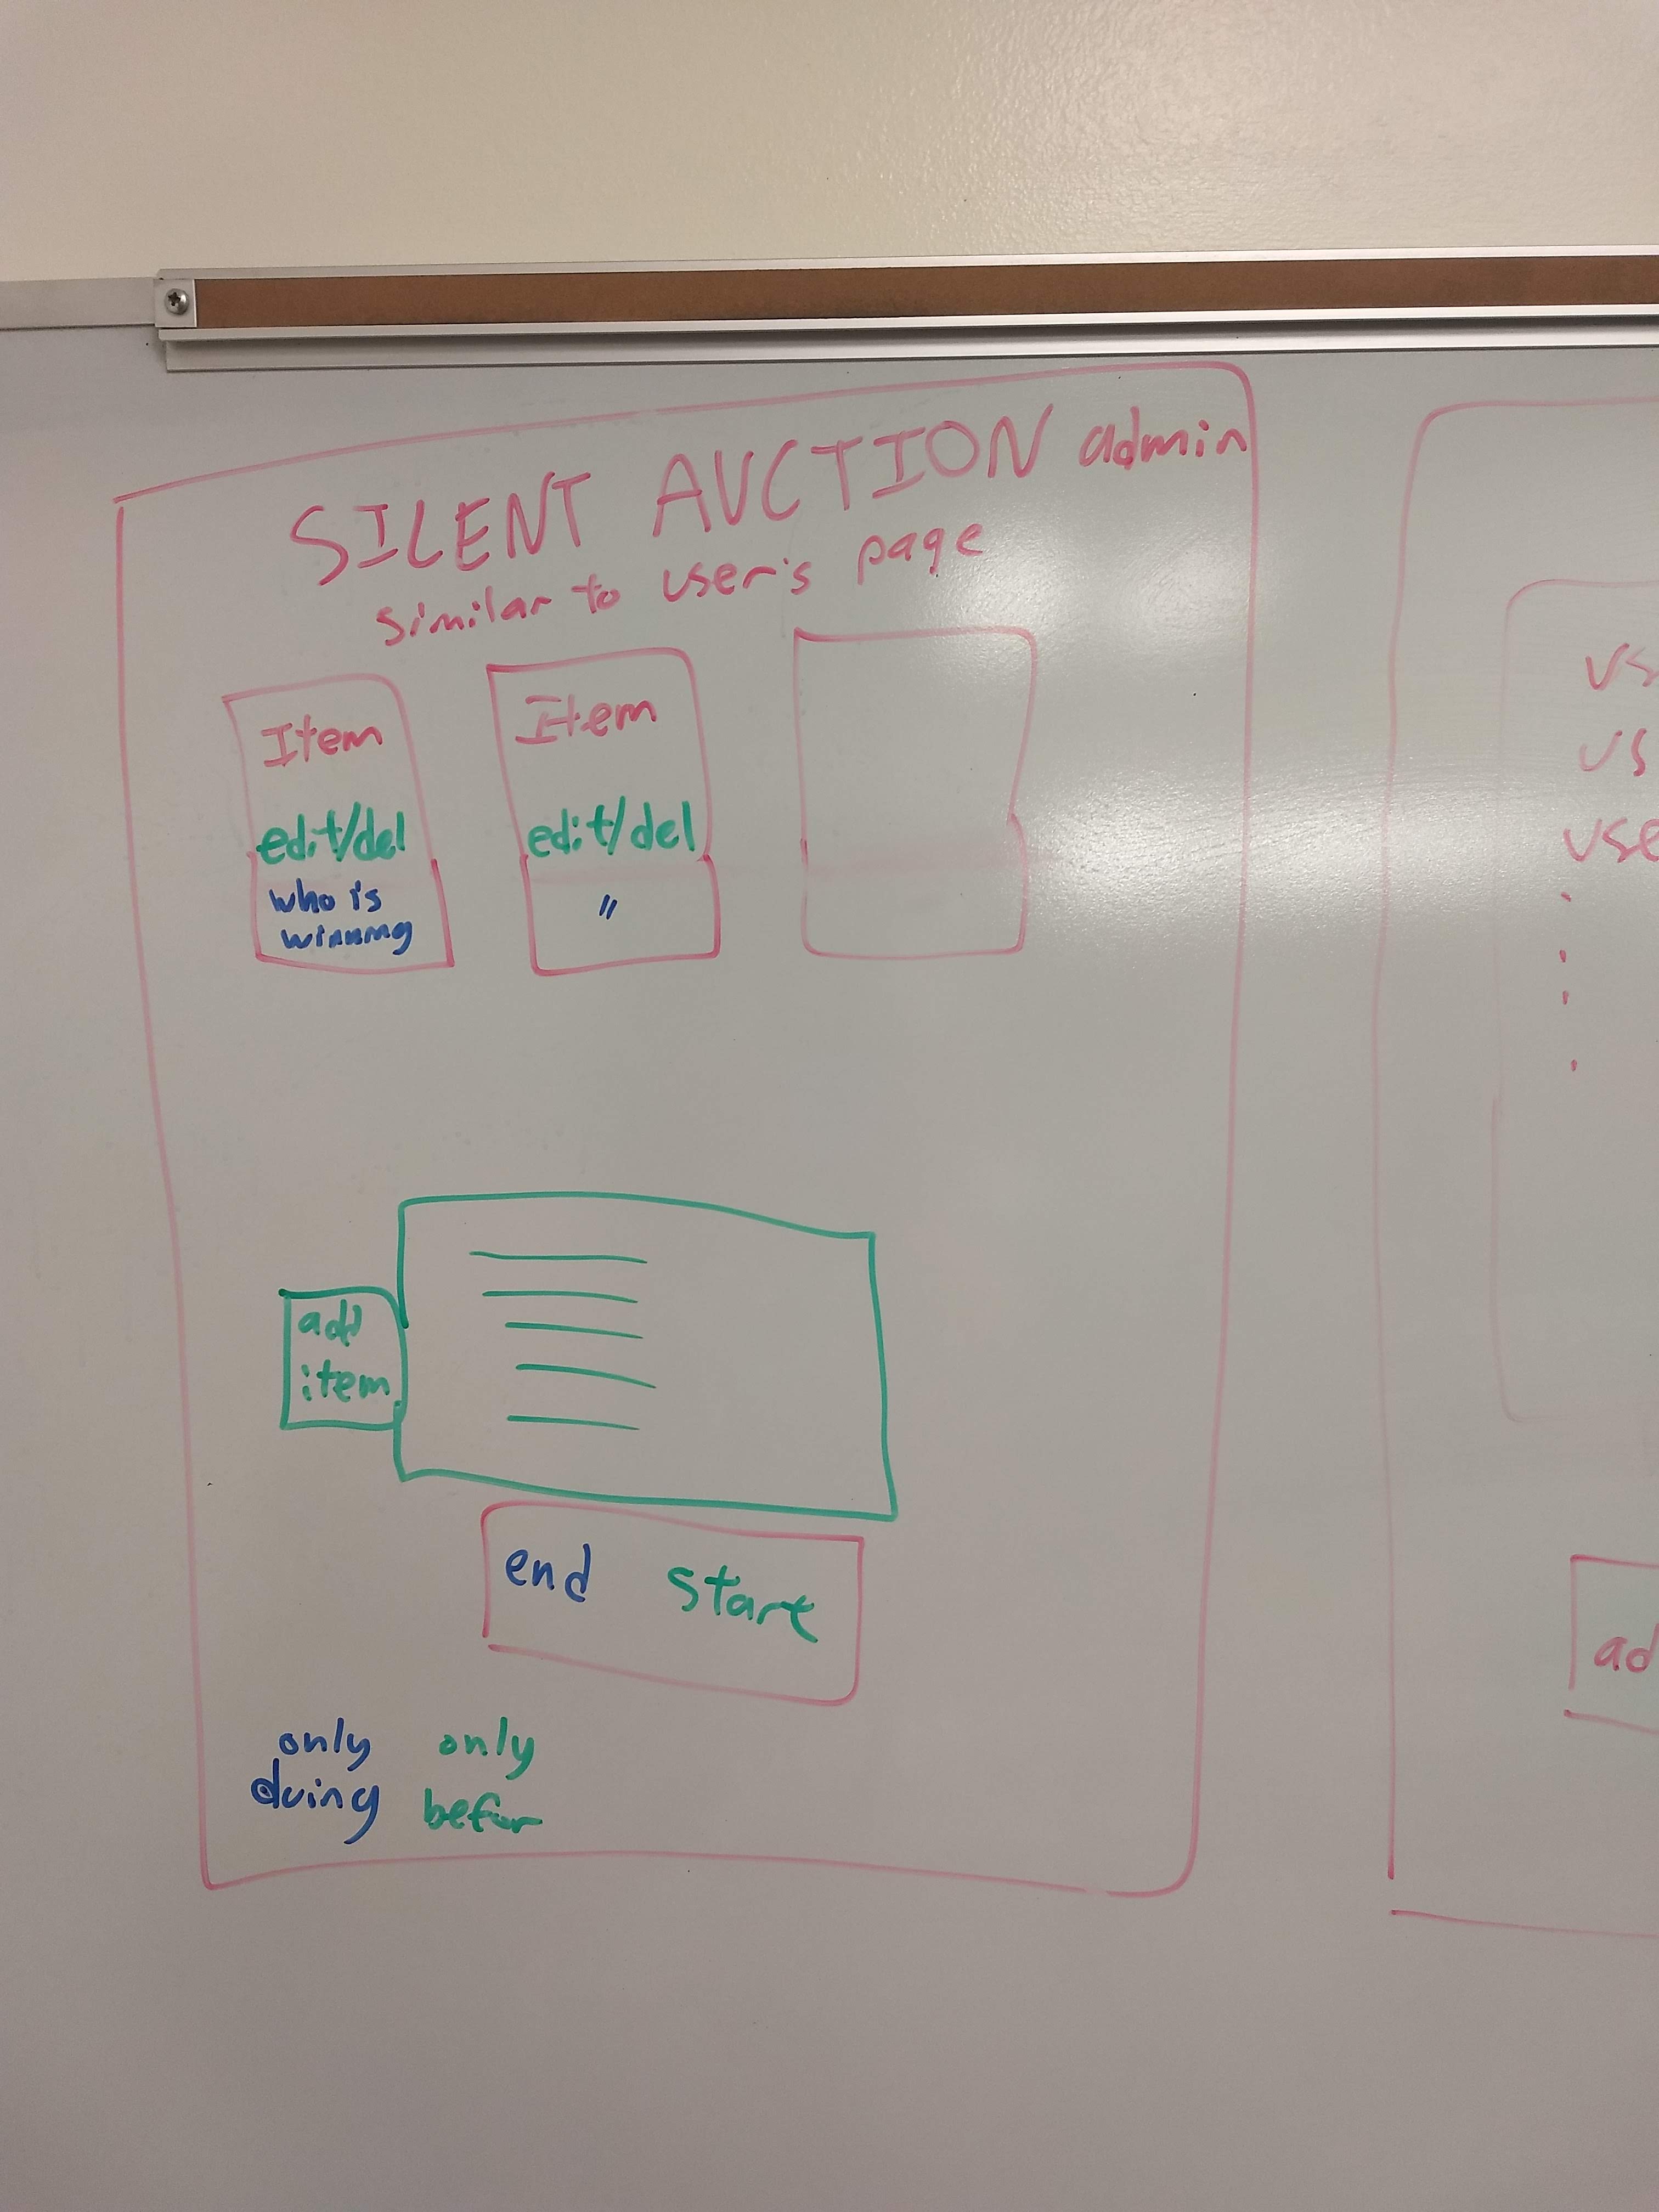 SILENT AUCTION admin
similar to user's page
Item
edit/del
who is
winning
Item
edit/del
"
add
item
end start
only
duing
only
befor
us
us
use
ad